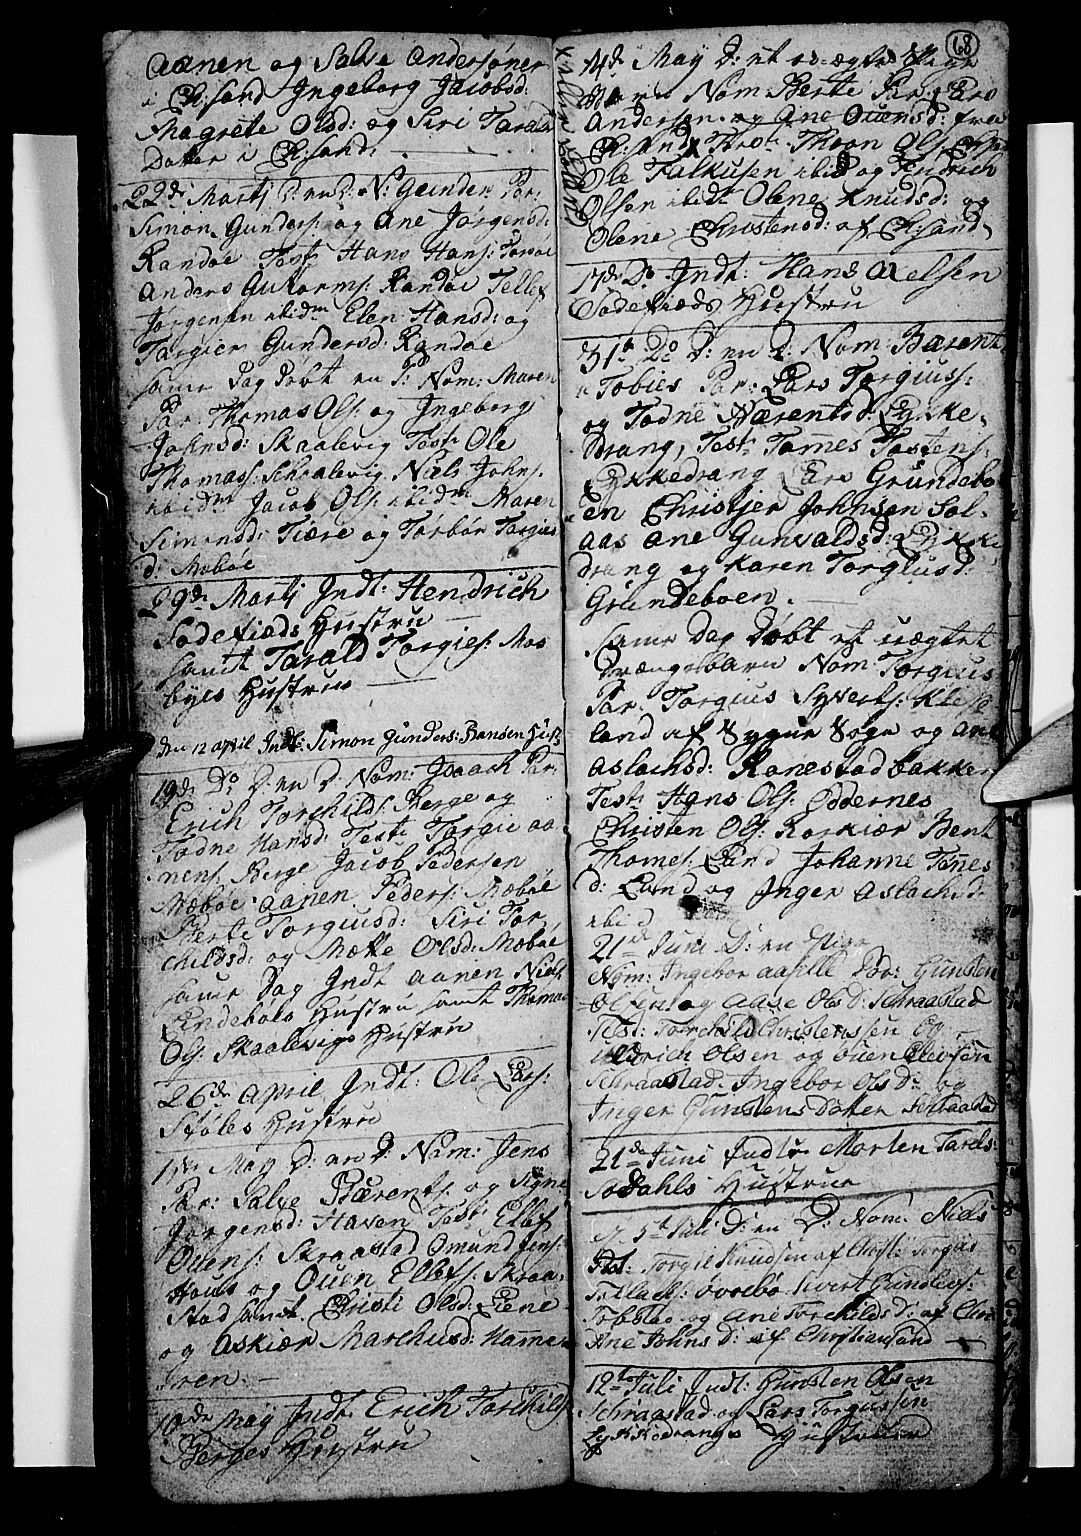 Aanen og Salve Andersøner
i Ch:sand Ingeborg Jacobsd:
Magrete Olsd: og Siri Tarals
Dater i Ch:sand.
22de Martj D: en D: N: Gunder Par:
Simon Gunders: og Ane Jørgensd:
Randøe Test: Hans Hans:
Anders Randøe Tellef
Jørgensen ibidm Elen Hansd: og
Targier Gundersd: Randøe
samme Dag Døbt en P: Nom: Maren
Par: Thomas Ols: og Ingeborg
Johnsd: Skaalevig Test: Ole
Thomass: Schaalevig Niels Johns:
ibidm Jacob Ols: ibidm Maren
Simonsd: Tiære og Torbør Torgies
d: Mebøe
29de Martj Indt: Hendrich
Sødefieds Hustru
samt Tarald Torgies: Mos
byes Hustrue
den 12 April Indt: Simon Gunders: Randøen Hust:
19de Do D: en D: Nom: Isaach Par:
Erich Torchilds: Berge og
Todne Hansd: Test: Torgie Aa
nens: Berge Jacob Pedersen
Mæbøe Aanen Peders: Mæbøe
Berte Torgiusd: Siri Tor,
childsd: og Mætte Olsd: Mæbøe
samme Dag Indt Aanen Niels:
Lindebøes Hustru samt Thomas
Ols: Skaalevigs Hustru
26de April Indt: Ole Lars:
Støles Hustru
May D: en D: Nom: Jens
Par: Salve Bærents: og Signe
Jørgensd: Haven Test: Ellef
Ouens: Skraastad Omund Jens:
Houes og Ouen Ellefs: Skraa,
stad samt Christi Olsd: Eiene
og Askier Marchusd: Hamme
ren.
10de May Indt: Erich Torchilds:
Berges Hustru
68
4de May D: et uægte Pige
Barn Nom: Berte Par: Pro
Andersen og Ane Ouensd: fra
Ch:sand Test: Thom Ols:
Ole Falkusen ibid og Hendrich
Olsen ibid: Olene Knudsd: og
Olene Christensd: af Ch:sand
17de Do Indt: Hans Axelsen
Sødefieds Hustru
31te Do D: en D: Nom: Bærent
Tobies Par: Lars Torgiuss:
og Todne Bærentsd: Lykke,
drang, Test: Tomes Tostens:
Lykkedrang Lars Grundebo
en Christjer Johnsen Sol
aas Ane Gunvaldsd: Lykke
drang og Karen Torgiusd:
Grundeboen.
samme Dag Døbt et uægtet
Drængebarn Nom: Torgius
Par: Torgius Syverts: Kleve
land af Sygne Sogn og Ane
Aslachsd: Ronestad bakken
Test: Hans Ols: Oddernes
Christen Ols: Korkiær Bent
Thomes: Lund Johanne Tomes
d: Lund og Inger Aslachsd:
ibid
21de Juni D: en Pige
Nom: Ingebor Par: Gunsten
Olsen og Aase Ols D: Schraastad
Test: Torchild Christenssen og
Uldrich Olsen og Ouen Elevsen
Schraastad. Ingebor Ols D: og
Inger Gunstens Datter Schraastad
21de Juni Indt: Morten Tarals:
Sodahls Hustrue
5te Juli D: en D: Nom: Niels
Test: Torgie Knudsen af Christ: Torgius
Øvrebø Sivert Gundersø:
Tobstad og Ane Torchilds D: af Chri
Ane Johns D: af Christiansand
12te Juli Indt: Gunsten Olsen
Schraastad og Lars Torgiussen
Lykkedrangs Hustruer